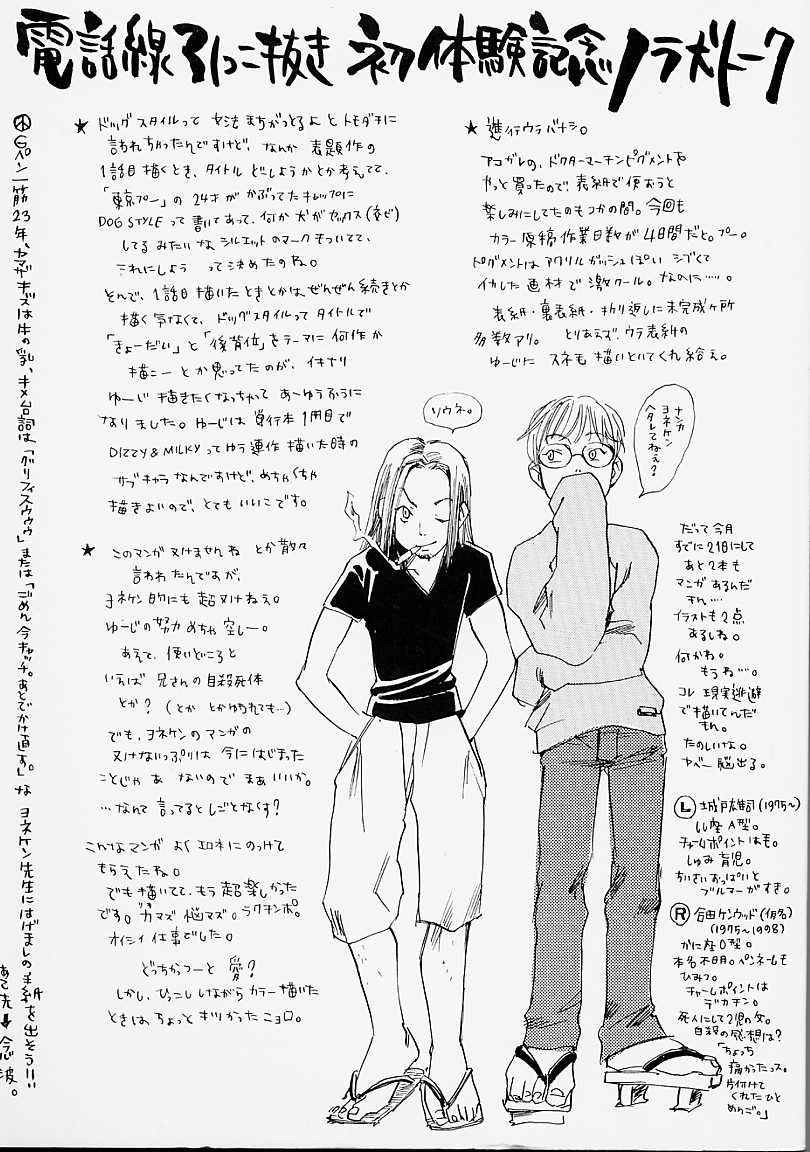 電話線引っこ抜き 初体験記念ノラ犬トーク
★ ドッグスタイルって 文法まちがっとるよ とトモダチに
言われちゃったんですけど、なんか 表題作の
1話目描くとき、タイトル どしようかとか考えてて、
「東京プー」の24才がかぶってたキャップに
DOG STYLEって書いてあって、何か犬がセックス(交ビ)
してる みたいな シルエットのマークもついてて、
これにしよう って決めたのね。
とんで、1話目描いたときとかは、ぜんぜん続きとか
描く気なくて、ドッグスタイルってタイトルで
「きょーだい」と「後背位」をテーマに何作か
描こー とか思ってたのが、イキナリ
ゆーじ 描きたくなっちゃって あーゆうふうに
なりました。ゆーじは単行本1冊目で
DIZZY & MILKYってゆう連作描いた時の
サブキャラなんですけど、めちゃくちゃ
描きよいので、とてもいいこです。
★ このマンガ ヌけませんね とか散々
言われたんですが、
ヨネケン的にも超ヌけねえ。
ゆーじの努力めちゃ空しー。
あえて、使いどころと
いえば 兄さんの自殺死体
とか？ (とか とかゆわれても…)
でも、ヨネケンのマンガの
ヌけないっぷりは 今にはじまった
ことじゃあ ないので まあいいか。
…なんて 言ってるとしごとなくす？
こんなマンガ よくエロネにのっけて
もらえたね。
でも描いてて、もう超楽しかった
です。ガマズ 悩マズ。ラクチンポ。
オイシイ仕事でした。
どっちかっつーと 愛？
しかし、ひっこししながらカラー描いた
ときは、ちょっとキツかったニョロ。
★ 進行ウラバナシ。
アコガレの、ドクターマーチンピグメントを
やっと買ったので、表紙で使おうと
楽しみにしてたのもつかの間。今回も
カラー原稿作業日数が4日間だと。プー。
ピグメントはアクリルガッシュぽい シブくて
イカした画材で激クール。なのに……。
表紙・裏表紙・折り返しに未完成ヶ所
多数アリ。 とりあえず、ウラ表紙の
ゆーじに スネも描いといてくれ給え。
ソウネ。
ナンカ
ヨネケン
ヘタレてねえ？
だって今月
すでに21日にして
あと2本も
マンガあるんだ
もん……
イラストも2点
あるしね。
何かね。
もうね…。
コレ 現実逃避
で描いてんだ
もん。
たのしいな。
ヤベー脳出る。
Ⓛ 城戸雄司(1975～)
しし座A型。
チャームポイントはも。
しゅみ 育児。
ちいさいおっぱいと
ブルマーがすき。
Ⓡ 合田ケンウッド(仮名)
(1975～1998)
かに座O型。
本名不明。ペンネームも
ひみつ。
チャームポイントは
デカチン。
死人にして2児の父。
自殺の感想は？
「ちょっち
痛かったっス。
片付けて
くれたひと
めんご。」
Gペン一筋23年、ヤマザキズは牛の乳、キメ台詞は、「グリフィスウゥゥ」または「ごめん今キャッチ。あとでかけ直す。」な ヨネケン先生にはげましの手紙を出そう!!
あて先➡念波。